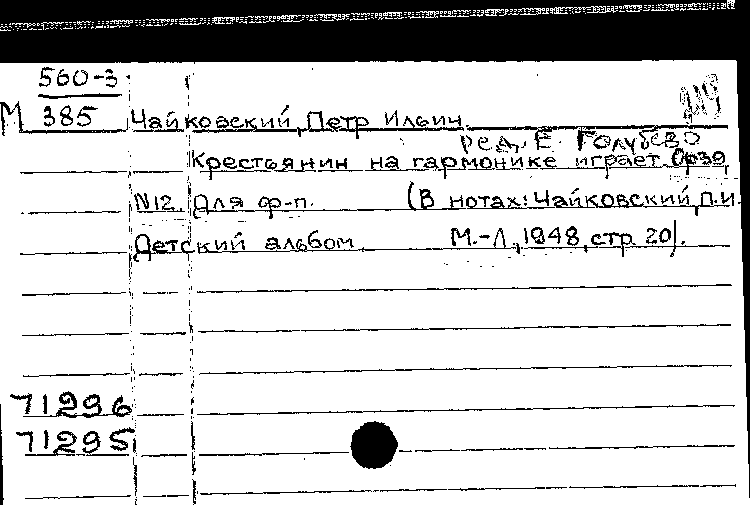 560-3
М 385 Чайковский, Петр Ильич.
ред. Е. Голубево
Крестьянин на гармонике играет. Ор39,
N12. Для ф-п. (В нотах: Чайковский, П.И.
Детский альбом. М.-Л., 1948, стр. 20).
71296
71295